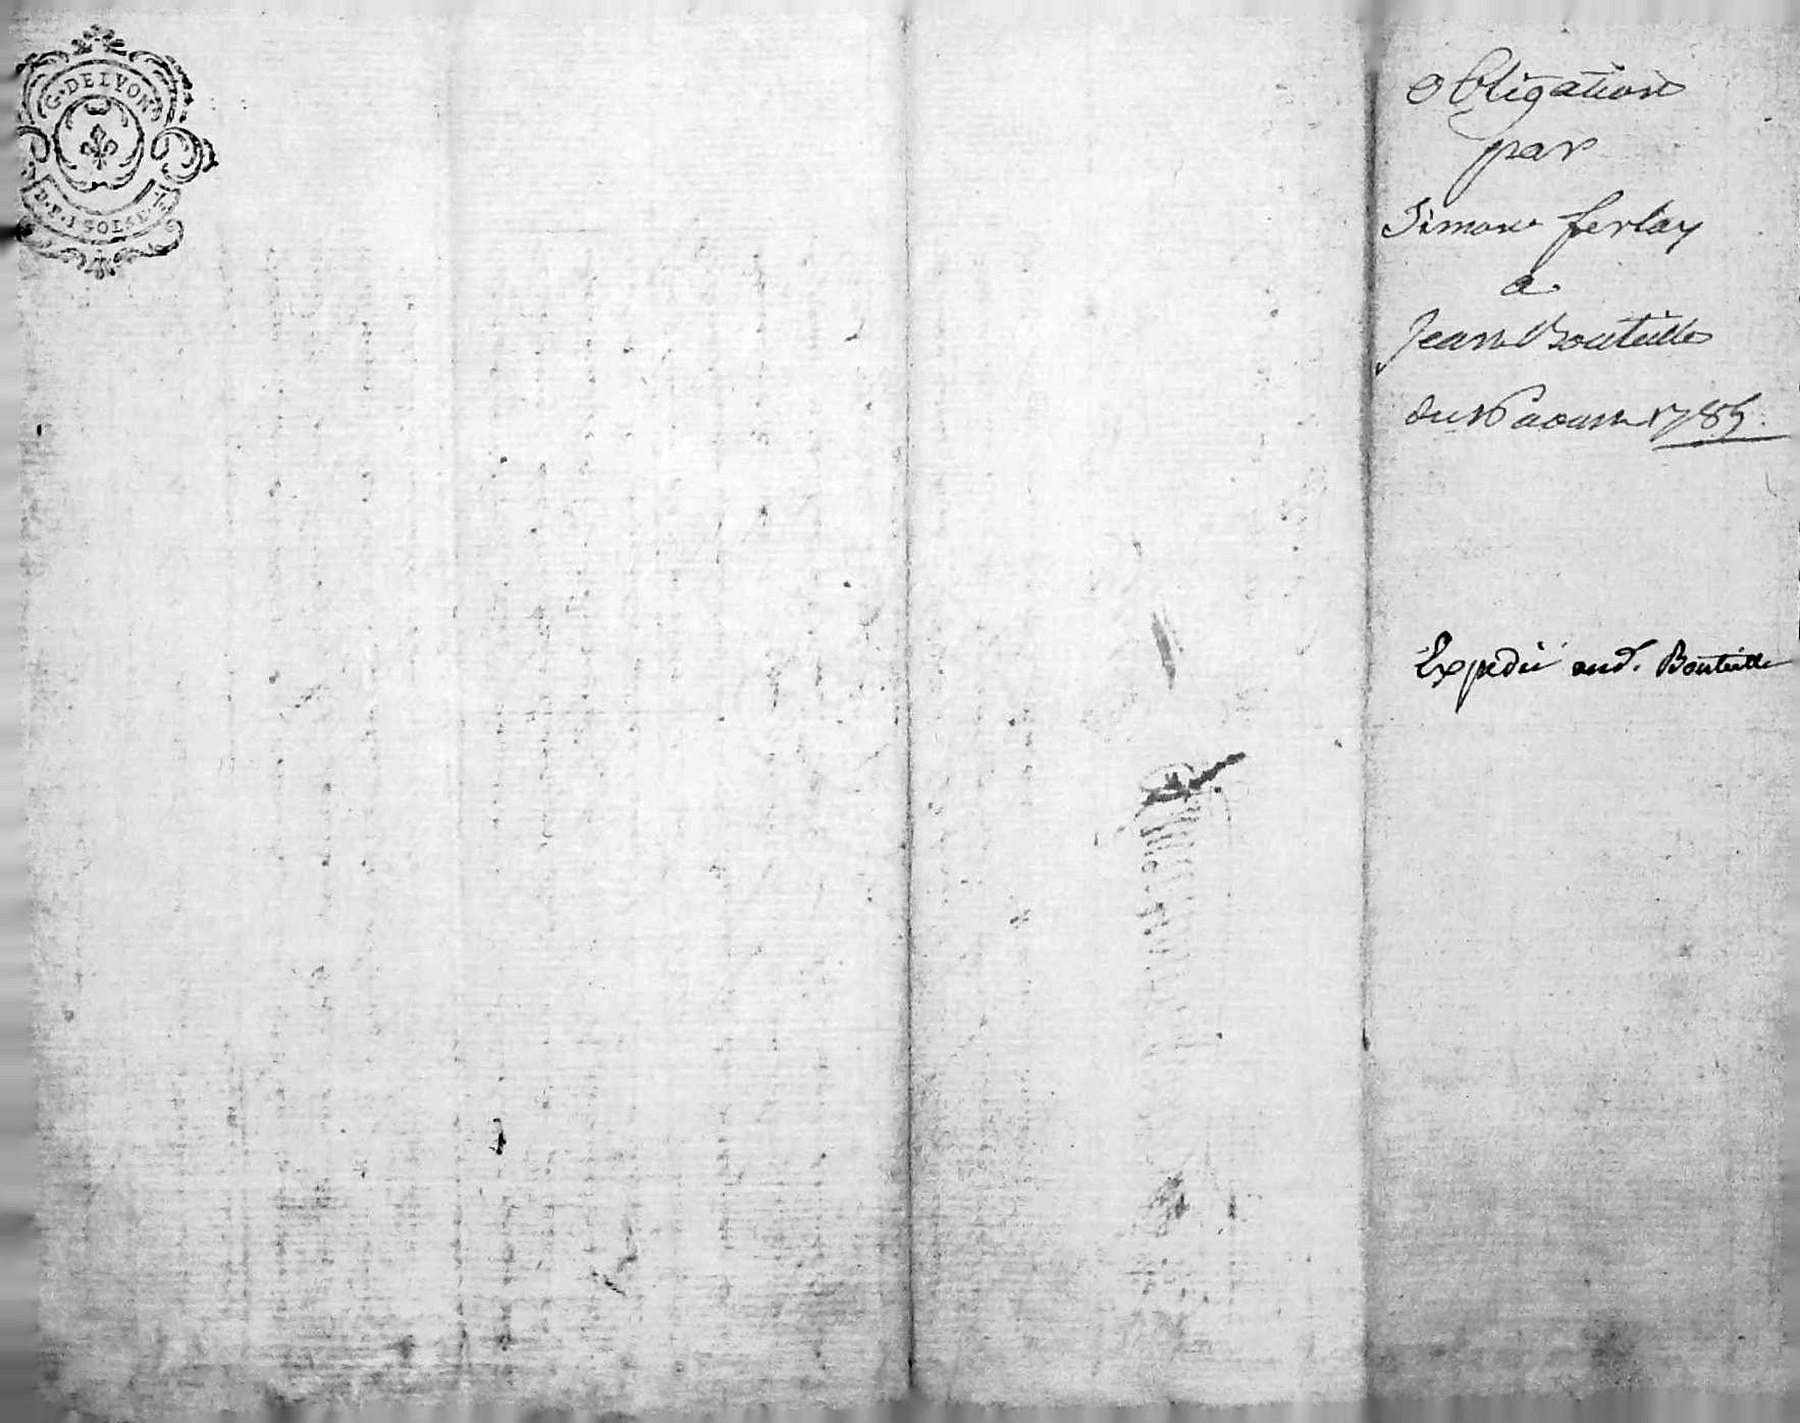 G·DELYON
D.P. 1 SOL 4 D.T.
Obligation
par
Simon ferlay
a
Jean Bouteille
du 16 aoust 1785.
Expedié aud. Bouteille